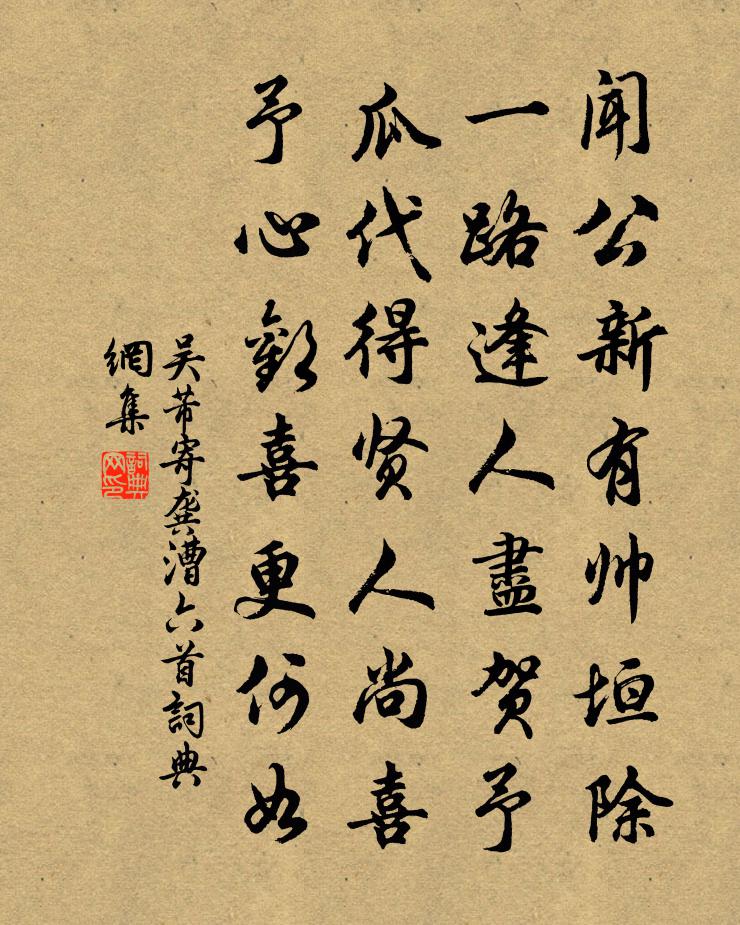 闻公新有帅垣除
一路逢人盡贺予
瓜代得贤人尚喜
予心歡喜更何如
吴芾寄龚漕六首詞典
網集
詞典网印